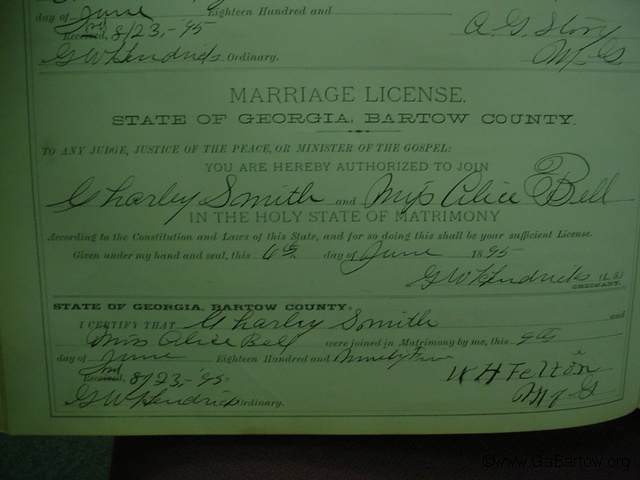 day of June Eighteen Hundred and
Received, 8/23,-'95
A G. Story
G W Hendricks Ordinary.
M. G
MARRIAGE LICENSE.
STATE OF GEORGIA, BARTOW COUNTY.
TO ANY JUDGE, JUSTICE OF THE PEACE, OR MINISTER OF THE GOSPEL:
YOU ARE HEREBY AUTHORIZED TO JOIN
Charley Smith and Miss Alice Bell
IN THE HOLY STATE OF MATRIMONY
According to the Constitution and Laws of this State, and for so doing this shall be your sufficient License.
Given under my hand and seal, this 6th day of June 1895
G W Hendricks (L.S.)
ORDINARY.
STATE OF GEORGIA, BARTOW COUNTY:
I CERTIFY THAT Charley Smith and
Miss Alice Bell were joined in Matrimony by me, this 9th
day of June Eighteen Hundred and Ninety Five
Received, 8/23,-'95
W H Felton
G W Hendricks Ordinary.
M G
©www.GaBartow.org